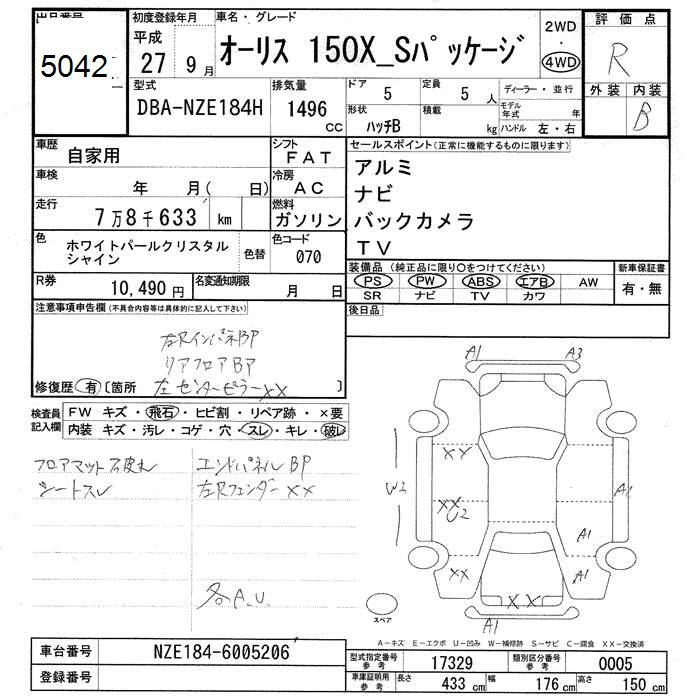 出品番号
5042
初度登録年月
平成
27 9月
車名・グレード
オーリス 150X_Sパッケージ
2WD
・
4WD
評価点
R
外装 内装
B
型式
DBA-NZE184H
排気量
1496
cc
ドア
5
定員
5 人
形状
ハッチB
積載
kg
ディーラー・並行
モデル
年式 年
ハンドル 左・右
車歴
自家用
シフト
FAT
車検
年 月( 日)
冷房
AC
走行
7万8千633 km
燃料
ガソリン
色
ホワイトパールクリスタル
シャイン
色替
色コード
070
R券
10,490 円
名変通知期限
月 日
セールスポイント(正常に機能するものに限ります)
アルミ
ナビ
バックカメラ
TV
装備品 (純正品に限り○をつけてください)
PS PW ABS エアB AW
SR ナビ TV カワ
新車保証書
有・無
後日品
注意事項申告欄(不具合内容等は具体的に記入して下さい)
左Rインパネ BP
リアフロア BP
修復歴 有 〔箇所 左センターピラーXX 〕
検査員
記入欄
FW キズ・飛石・ヒビ割・リペア跡・×要
内装 キズ・汚レ・コゲ・穴・スレ・キレ・破レ
フロアマット破れ
シートスレ
エンドパネル BP
左Rフェンダー XX
各A.U.
A1 A3
XX
W2
XX
U2
A1
A1
XX
A1
XX
A1
スペア
A－キズ E－エクボ U－凹み W－補修跡 S－サビ C－腐食 XX－交換済
車台番号
NZE184-6005206
登録番号
型式指定番号
参考
17329
類別区分番号
参考
0005
車庫証明用
参考
長さ
433 cm
幅
176 cm
高さ
150 cm